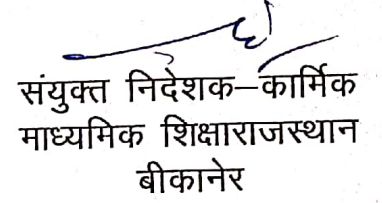 संयुक्त निदेशक–कार्मिक
माध्यमिक शिक्षाराजस्थान
बीकानेर